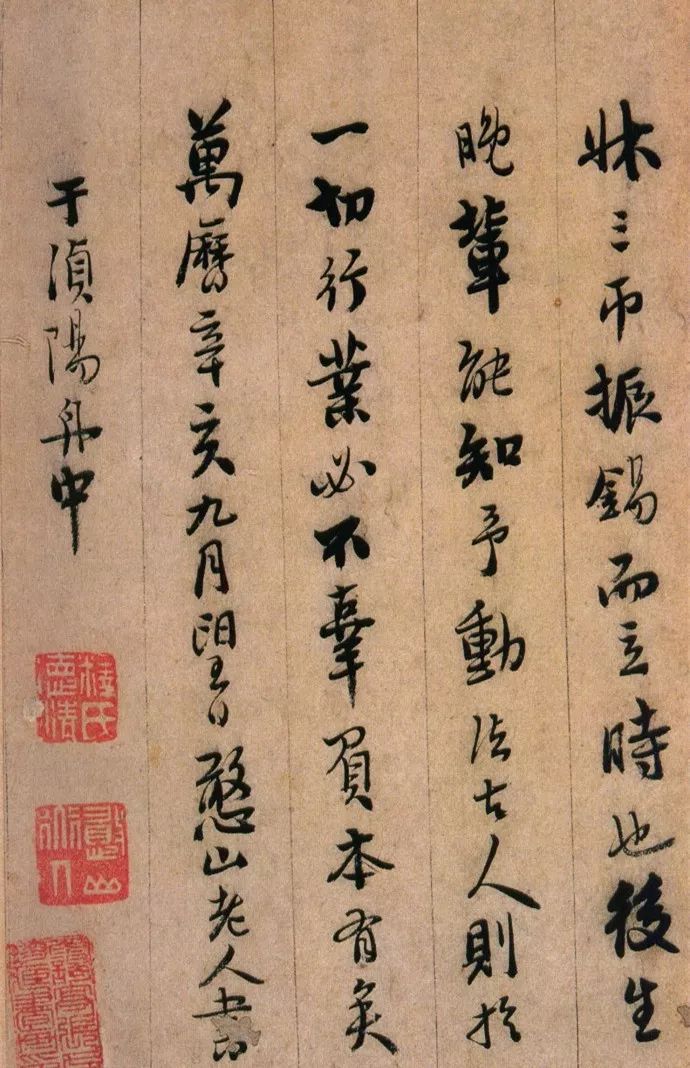 牀三帀振錫而立時也後生
晚輩能知予動法古人則於
一切行業必不辜負本有矣
萬曆辛亥九月望日憨山老人書
于湞陽舟中
釋氏德清
憨山